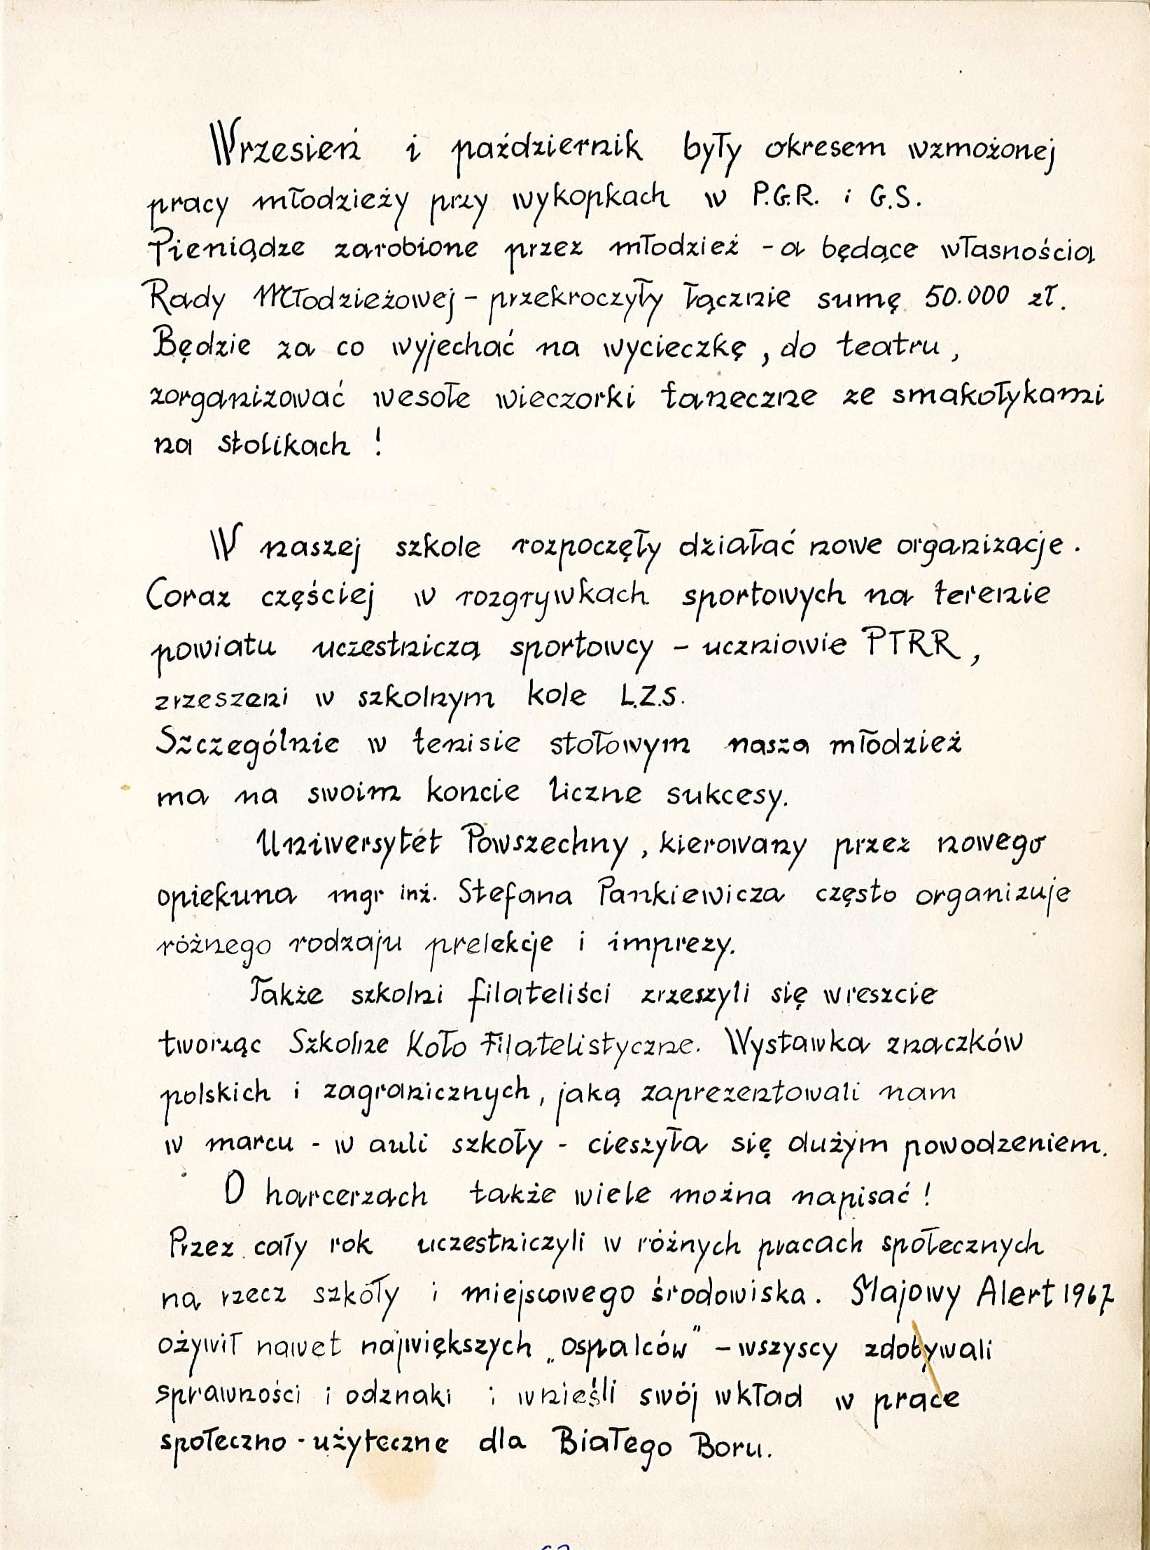 Wrzesień i październik były okresem wzmożonej
pracy młodzieży przy wykopkach w P.G.R. i G.S.
Pieniądze zarobione przez młodzież - a będące własnością
Rady Młodzieżowej - przekroczyły łącznie sumę 50.000 zł.
Będzie za co wyjechać na wycieczkę, do teatru,
zorganizować wesołe wieczorki taneczne ze smakołykami
na stolikach!
W naszej szkole rozpoczęły działać nowe organizacje.
Coraz częściej w rozgrywkach sportowych na terenie
powiatu uczestniczą sportowcy - uczniowie PTRR,
zrzeszeni w szkolnym kole L.Z.S.
Szczególnie w tenisie stołowym nasza młodzież
ma na swoim koncie liczne sukcesy.
Uniwersytet Powszechny, kierowany przez nowego
opiekuna mgr inż. Stefana Pankiewicza często organizuje
różnego rodzaju prelekcje i imprezy.
Także szkolni filateliści zrzeszyli się wreszcie
tworząc Szkolne Koło Filatelistyczne. Wystawka znaczków
polskich i zagranicznych, jaką zaprezentowali nam
w marcu - w auli szkoły - cieszyła się dużym powodzeniem.
O harcerzach także wiele można napisać!
Przez cały rok uczestniczyli w różnych pracach społecznych
na rzecz szkoły i miejscowego środowiska. Majowy Alert 1967
ożywił nawet największych „ospalców" - wszyscy zdobywali
sprawności i odznaki i wnieśli swój wkład w prace
społeczno-użyteczne dla Białego Boru.